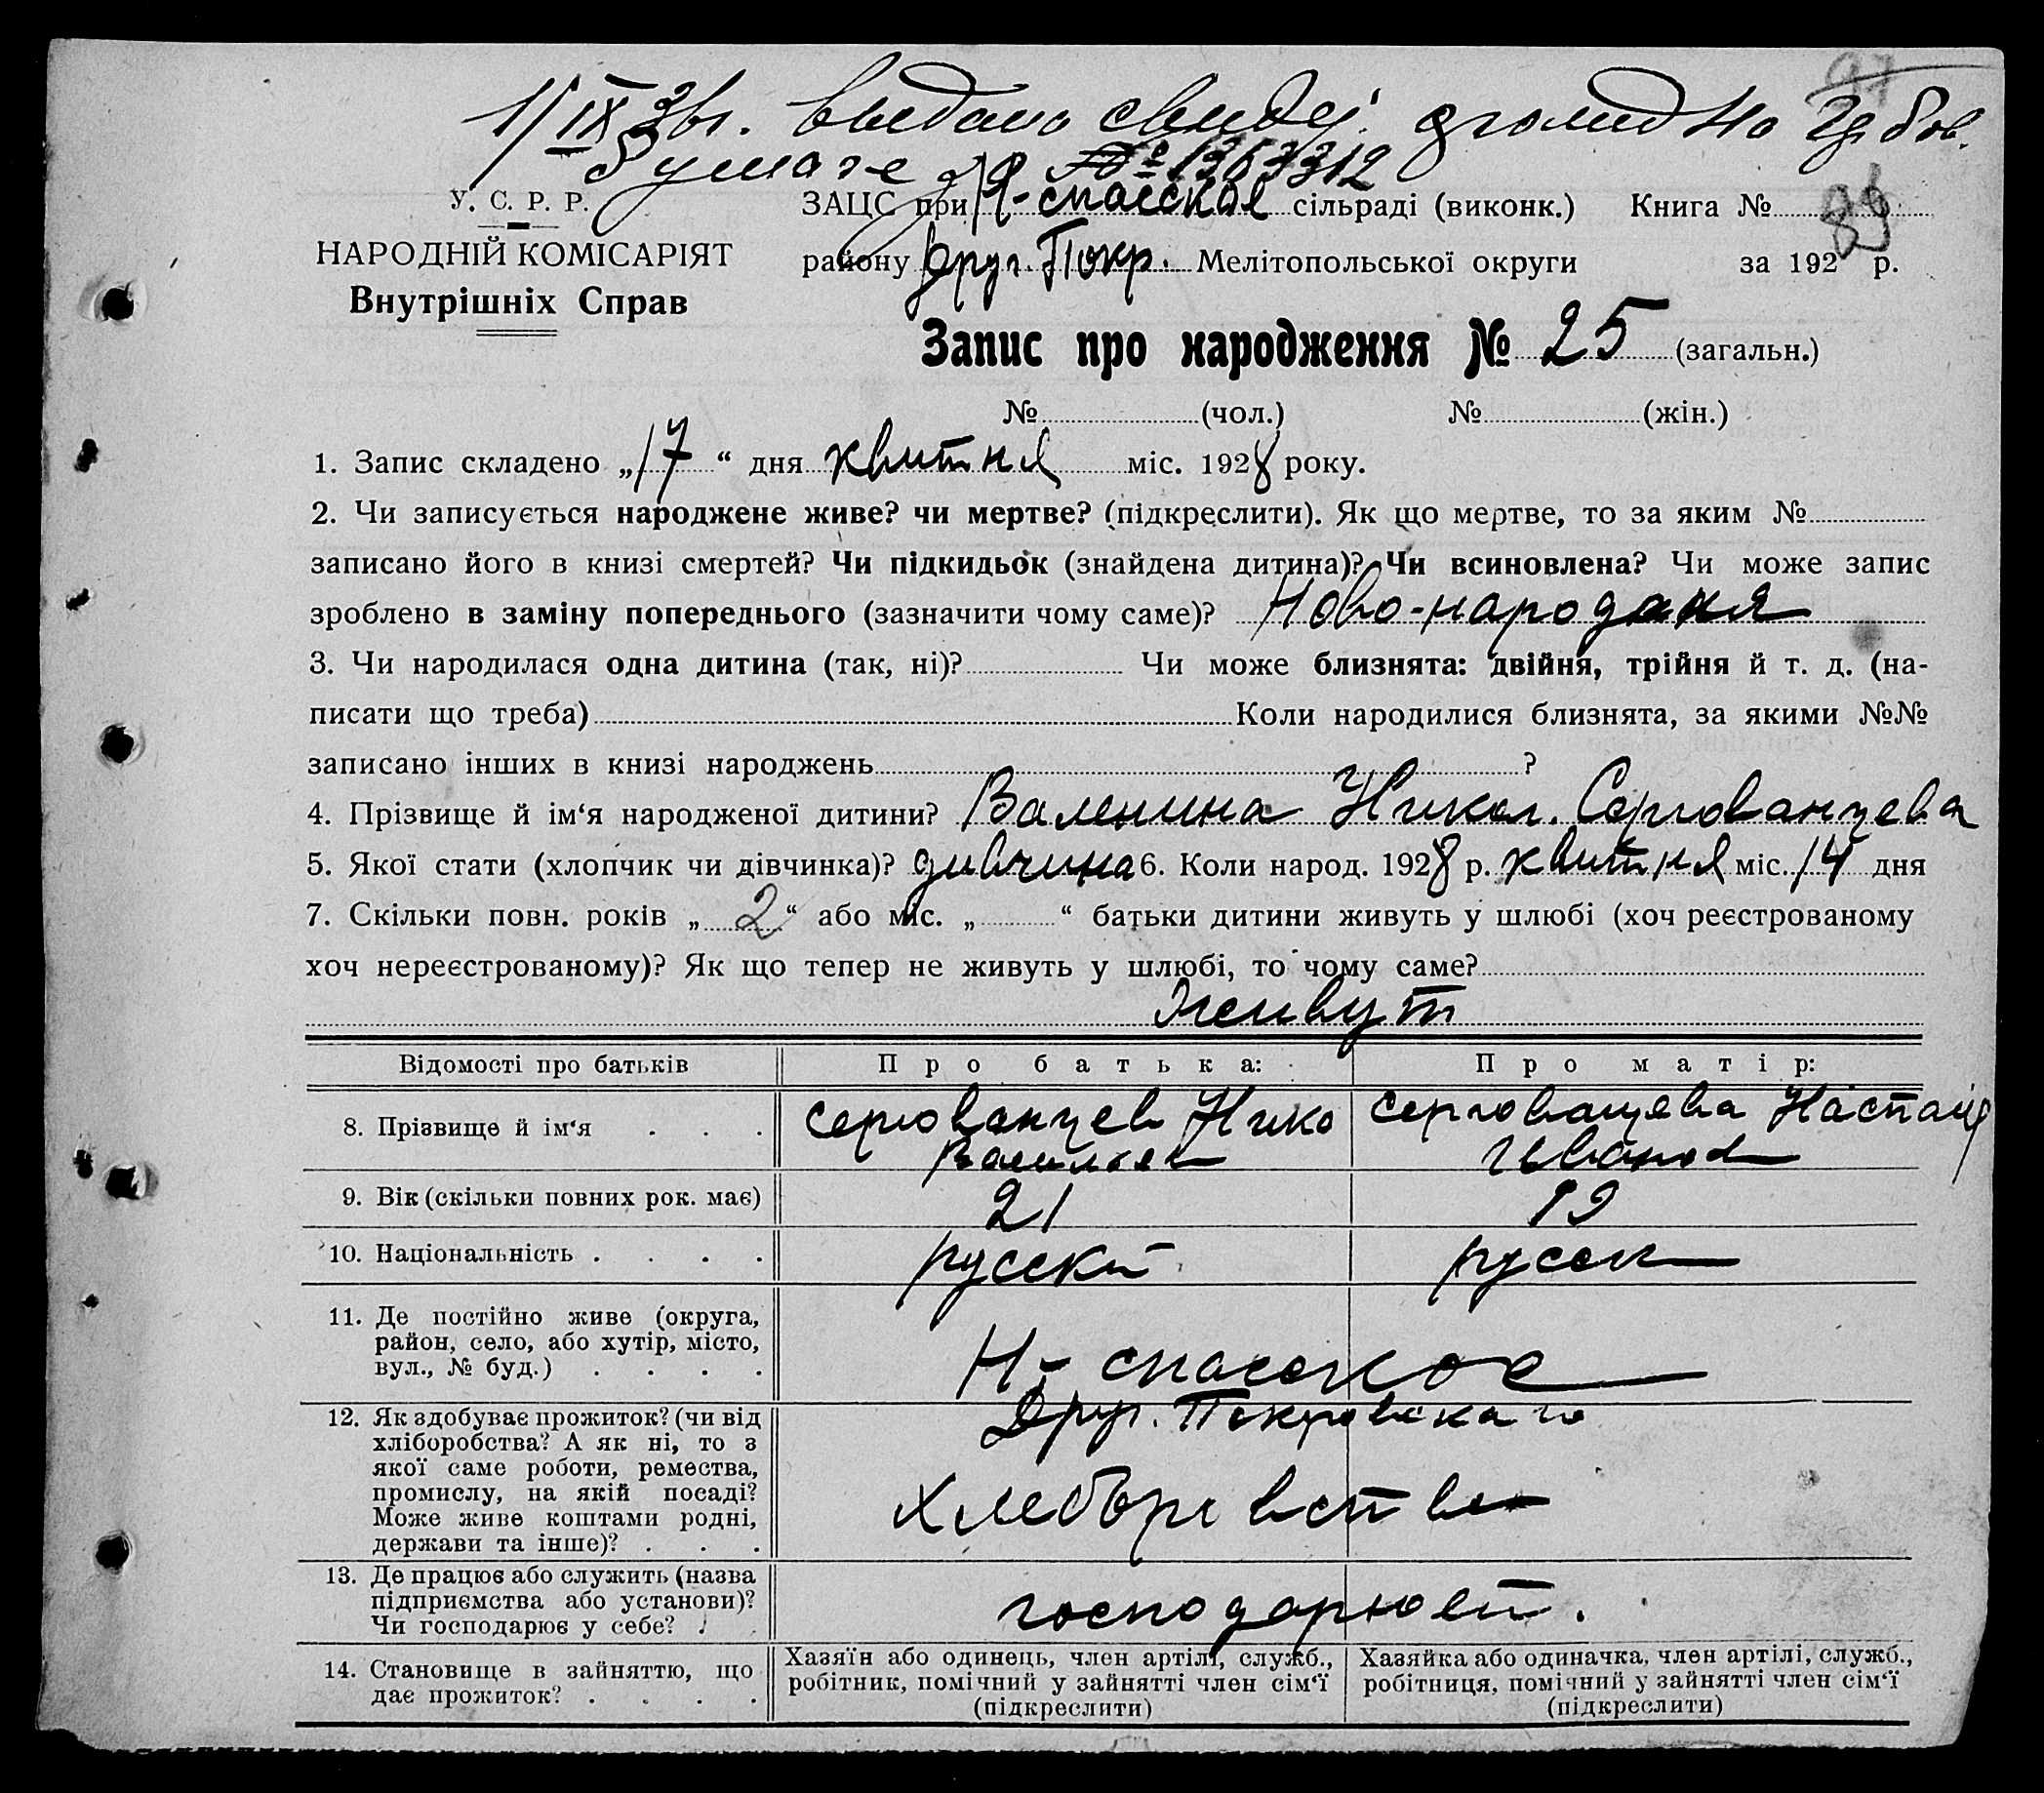 1/IX 36г. выдано свидет.
бумаге № 1363312
У. С. Р. Р.
НАРОДНІЙ КОМІСАРІЯТ
Внутрішніх Справ
ЗАЦС при Н-спасская сільраді (виконк.) Книга №
району Друг. Покр. Мелітопольської округи за 1928 р.
Запис про народження № 25 (загальн.)
№ (чол.) № (жін.)
1. Запис складено „17“ дня квитня міс. 1928 року.
2. Чи записується народжене живе? чи мертве? (підкреслити). Як що мертве, то за яким №
записано його в книзі смертей? Чи підкидьок (знайдена дитина)? Чи всиновлена? Чи може запис
зроблено в заміну попереднього (зазначити чому саме)? Ново-народаня
3. Чи народилася одна дитина (так, ні)? Чи може близнята: двійня, трійня й т. д. (на-
писати що треба) Коли народилися близнята, за якими №№
записано інших в книзі народжень ?
4. Прізвище й ім‘я народженої дитини? Валенина Никол. Серговансева
5. Якої стати (хлопчик чи дівчинка)? дивчина 6. Коли народ. 1928 р. квитня міс. 14 дня
7. Скільки повн. років „2“ або міс. „ “ батьки дитини живуть у шлюбі (хоч реєстрованому
хоч нереєстрованому)? Як що тепер не живуть у шлюбі, то чому саме?
Живут
Відомості про батьків Про батька: Про матір:
8. Прізвище й ім‘я . . . Серговансев Нико Сергованцева Настаця
Васильев Иванов
9. Вік (скільки повних рок. має) 21 19
10. Національність . . . . русский русск
11. Де постійно живе (округа,
район, село, або хутір, місто,
вул., № буд.) . . . . Н-спасское
Друг. Покровскаго
12. Як здобуває прожиток? (чи від
хліборобства? А як ні, то з
якої саме роботи, ремества,
промислу, на якій посаді?
Може живе коштами родні,
держави та інше)? . . . Хлеборовство
13. Де працює або служить (назва
підприємства або установи)?
Чи господарює у себе? . господарюет.
14. Становище в зайняттю, що
дає прожиток? . . . .
Хазяїн або одинець, член артілі, служб.,
робітник, помічний у зайнятті член сім‘ї
(підкреслити)
Хазяйка або одиначка, член артілі, служб.,
робітниця, помічний у зайнятті член сім‘ї
(підкреслити)